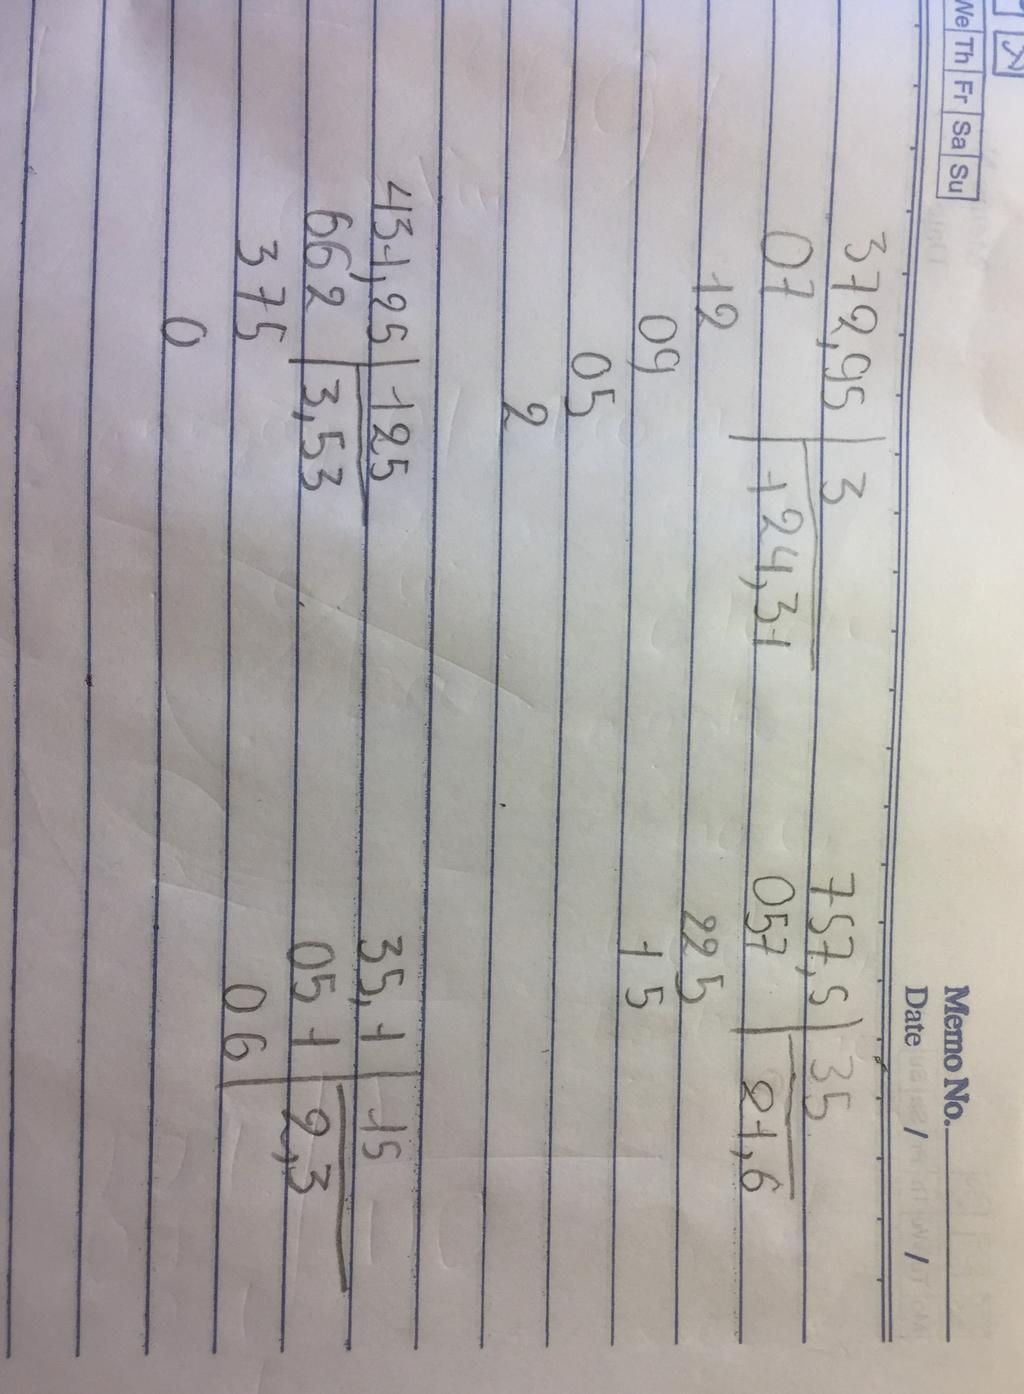 We Th Fr Sa Su
Memo No.
Date / /
372,95 3
07 124,31
12
09
05
2
757,5 35
057 21,6
225
15
431,25 125
662 3,53
375
0
35,1 15
051 2,3
06